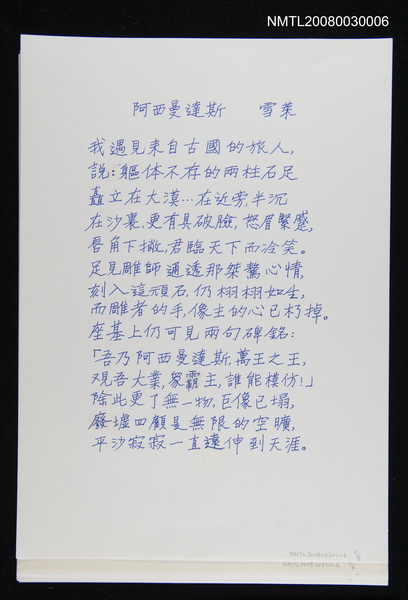 NMTL20080030006
阿西曼達斯 雪萊
我遇見來自古國的旅人,
說:軀体不存的兩柱石足
矗立在大漠…在近旁,半沉
在沙裏,更有具破臉,怒眉緊蹙,
唇角下撇,君臨天下而冷笑。
足見雕師通透那桀驁心情,
刻入這頑石,仍栩栩如生,
而雕者的手,像主的心已朽掉。
座基上仍可見兩句碑銘:
「吾乃阿西曼達斯,萬王之王,
观吾大業,眾霸主,誰能模仿!」
除此更了無一物,巨像已塌,
廢墟四顧是無限的空曠,
平沙寂寂一直遠伸到天涯。
NMTL20080030006
NMTL20080030006